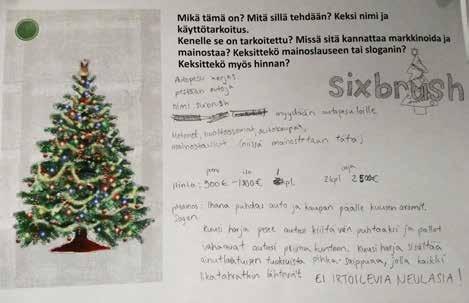 Mikä tämä on? Mitä sillä tehdään? Keksi nimi ja
käyttötarkoitus.
Kenelle se on tarkoitettu? Missä sitä kannattaa markkinoida ja
mainostaa? Keksittekö mainoslauseen tai sloganin?
Keksittekö myös hinnan?
sixbrush
Autopesu harjas
pestään autoja
nimi
myydään autopesuloille
mainostaulut (niissä mainostetaan tätä)
pieni iso
Hinta: 500€ - 1000€ 1 kpl 2 kpl 2500€
Mainos: Ihana puhdas auto ja kaupan päälle kuusen aromit.
Slogan
Kuusi harja pesee autosi kiiltävän puhtaaksi ja pallot
vahaavat autosi priima kuntoon. Kuusi harja sisältää
ainutlaatuisen tuoksuista pihka-saippuaa, jolla kaikki
likatahratkin lähtevät EI IRTOILEVIA NEULASIA!